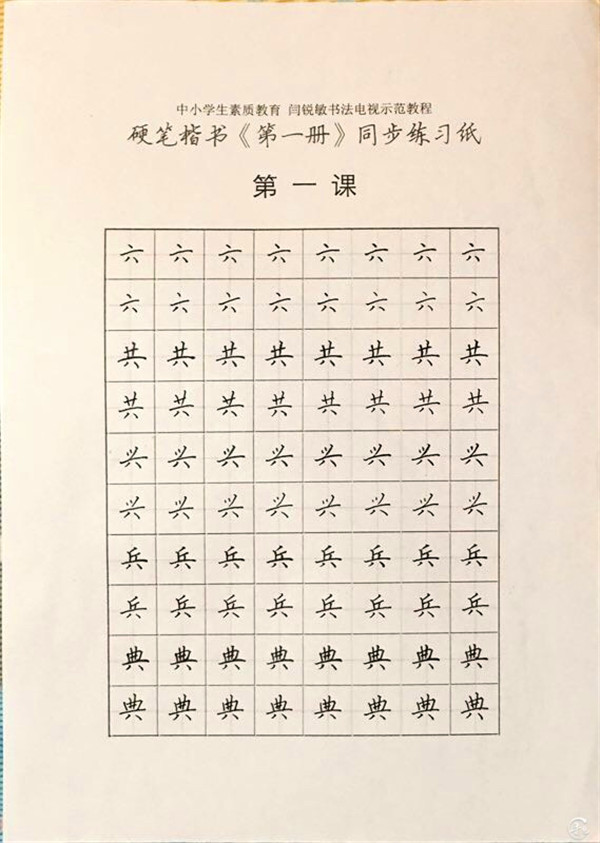 中小学生素质教育 闫锐敏书法电视示范教程
硬笔楷书《第一册》同步练习纸
第一课
六六六六六六六六
六六六六六六六六
共共共共共共共共
共共共共共共共共
兴兴兴兴兴兴兴兴
兴兴兴兴兴兴兴兴
兵兵兵兵兵兵兵兵
兵兵兵兵兵兵兵兵
典典典典典典典典
典典典典典典典典